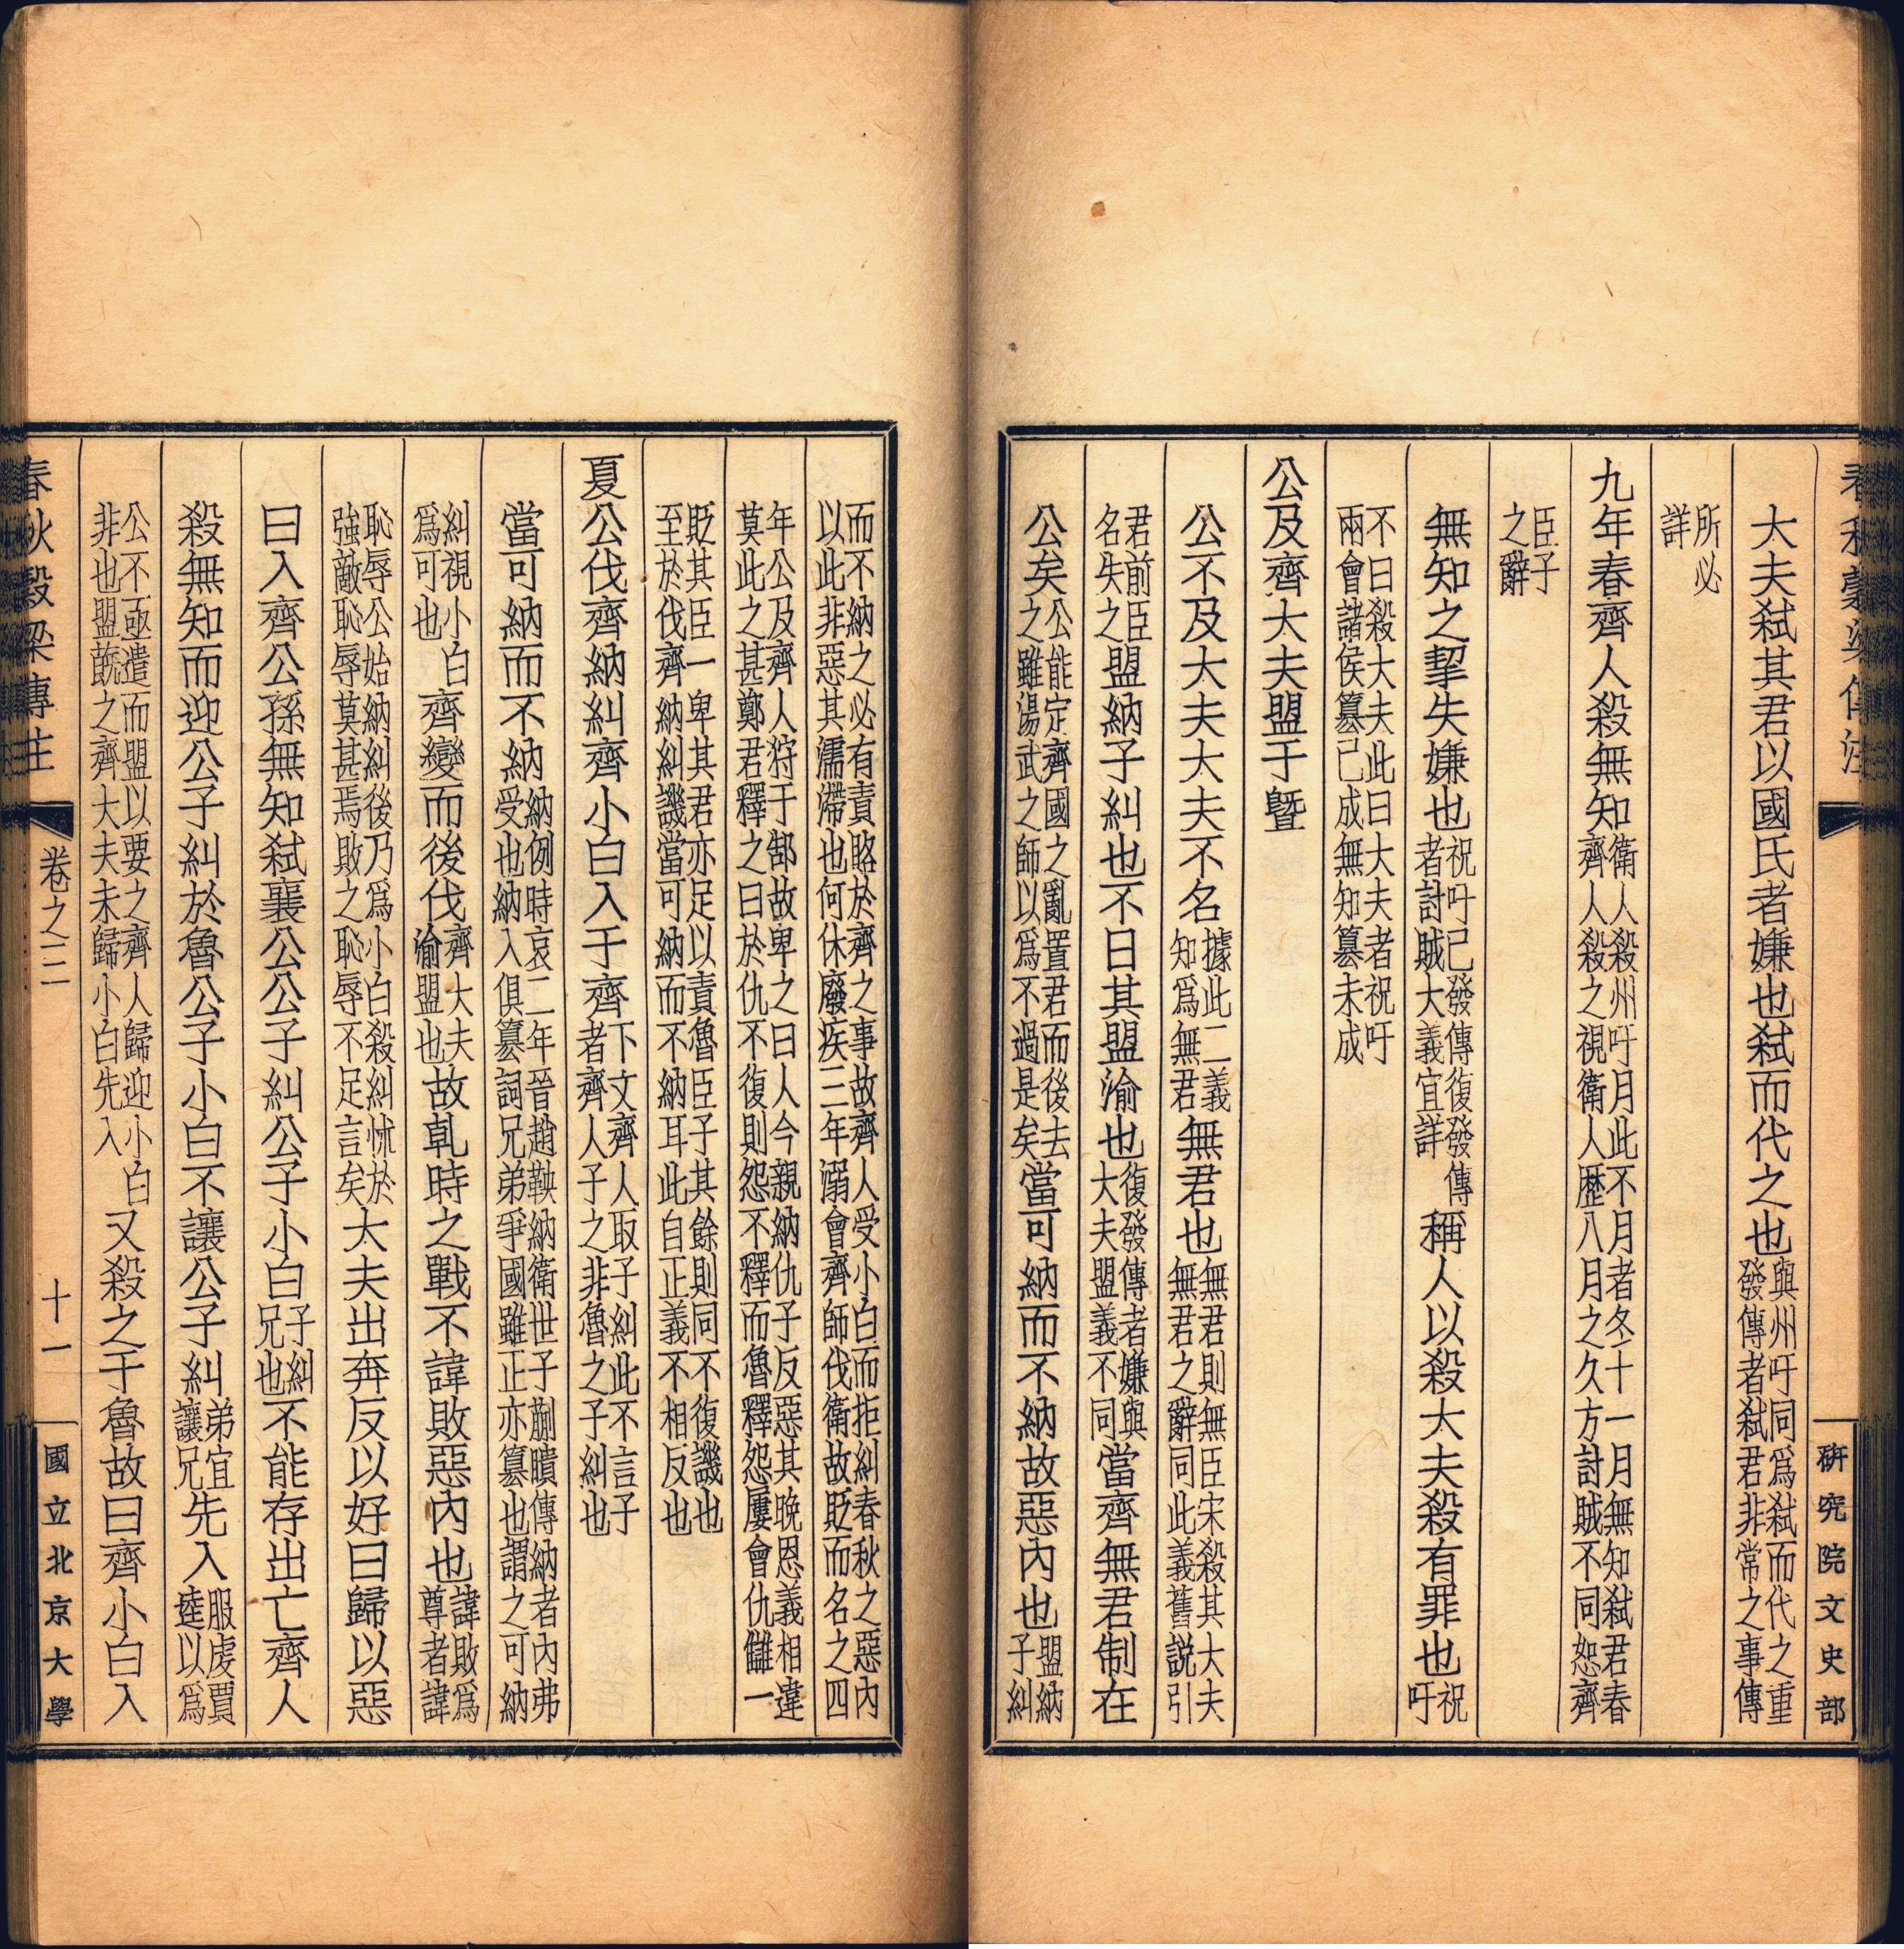 春秋穀梁傳注
研究院文史部
大夫弑其君以國氏者嫌也弑而代之也與州吁同爲弑而代之重發傳者弑君非常之事傳
所必詳
九年春齊人殺無知衛人殺州吁月此不月者冬十一月無知弑君春齊人殺之視衛人歷八月之久方討賊不同恕齊
臣子之辭
無知之挈失嫌也祝吁已發傳復發傳者討賊大義宜詳稱人以殺大夫殺有罪也祝吁
不曰殺大夫此曰大夫者祝吁兩會諸侯簒已成無知簒未成
公及齊大夫盟于暨
公不及大夫大夫不名據此二義知爲無君無君也無君則無臣宋殺其大夫無君之辭同此義舊説引
君前臣名失之盟納子糾也不日其盟渝也復發傳者嫌與大夫盟義不同當齊無君制在
公矣公能定齊國之亂置君而後去之雖湯武之師以爲不過是矣當可納而不納故惡内也盟納子糾
而不納之必有責賂於齊之事故齊人受小白而拒糾春秋之惡内以此非惡其濡滯也何休廢疾三年溺會齊師伐衛故貶而名之四
年公及齊人狩于郜故卑之曰人今親納仇子反惡其晚恩義相違莫此之甚鄭君釋之曰於仇不復則怨不釋而魯釋怨屢會仇讎一
貶其臣一卑其君亦足以責魯臣子其餘則同不復譏也至於伐齊納糾譏當可納而不納耳此自正義不相反也
夏公伐齊納糾齊小白入于齊下文齊人取子糾此不言子者齊人子之非魯之子糾也
當可納而不納納例時哀二年晉趙鞅納衛世子蒯聵傳納者内弗受也納入俱簒詞兄弟爭國雖正亦簒也謂之可納
糾視小白爲可也齊變而後伐齊大夫渝盟也故乹時之戰不諱敗惡内也諱敗爲尊者諱
恥辱公始納糾後乃爲小白殺糾怵於強敵恥辱莫甚焉敗之恥辱不足言矣大夫出奔反以好曰歸以惡
曰入齊公孫無知弑襄公公子糾公子小白子糾兄也不能存出亡齊人
殺無知而迎公子糾於魯公子小白不讓公子糾弟宜讓兄先入服虔賈逵以爲
公不亟遣而盟以要之齊人歸迎小白非也盟蔇之齊大夫未歸小白先入又殺之于魯故曰齊小白入
春秋穀梁傳注
卷之三
十一
國立北京大學